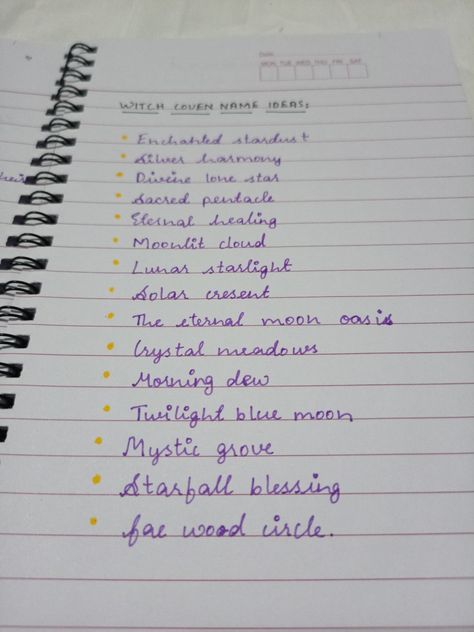 Date:
MON TUE WED THU FRI SAT
WITCH COVEN NAME IDEAS:
• Enchanted stardust
• Silver harmony
• Divine lone star
• Sacred pentacle
• Eternal healing
• Moonlit cloud
• Lunar starlight
• Solar cresent
• The eternal moon oasis
• Crystal meadows
• Morning dew
• Twilight blue moon
• Mystic grove
• Starfall blessing
• fae wood circle.